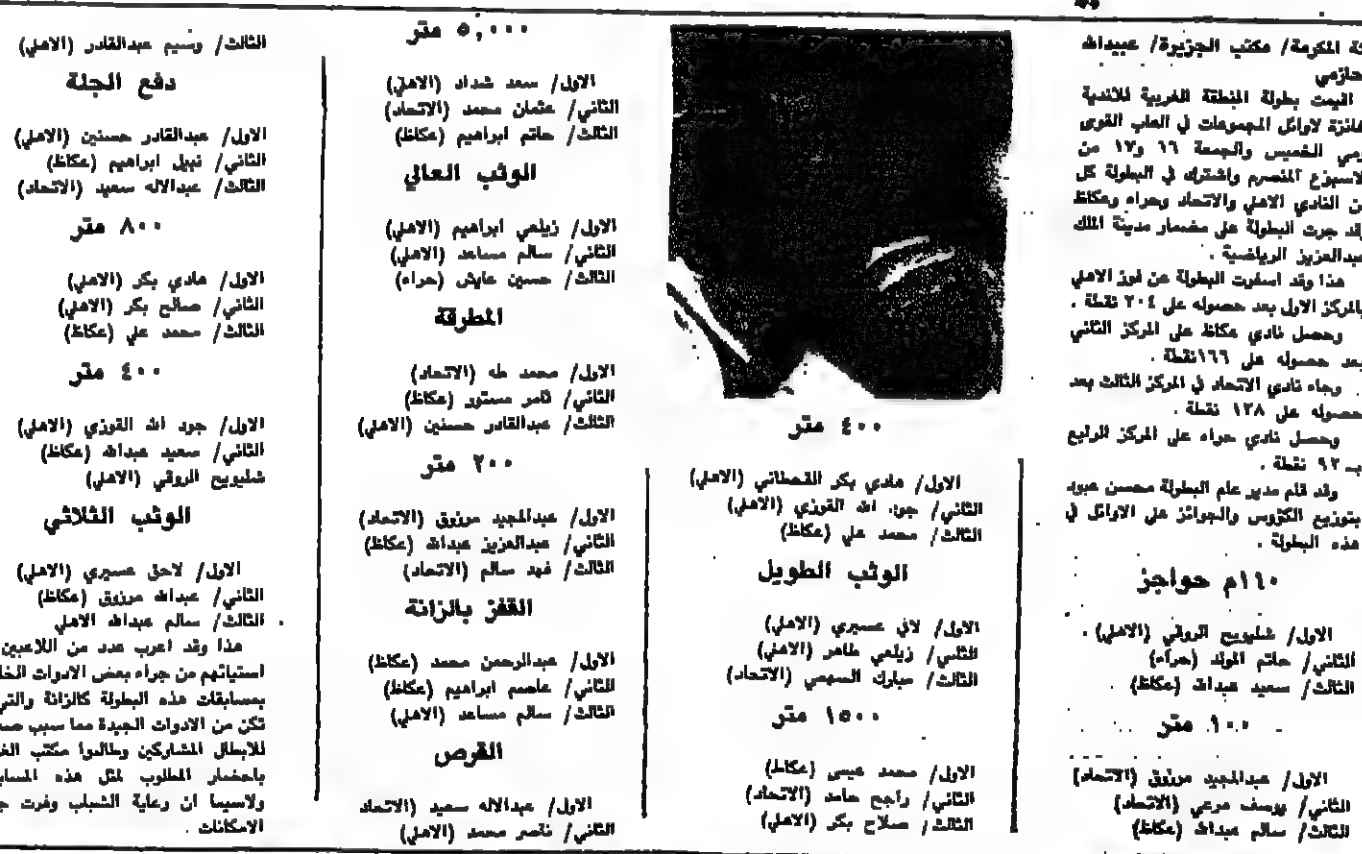 ة المكرمة/ مكتب الجزيرة/ عبيدالله
حازمي
اقيمت بطولة المنطقة الغربية للاندية
فائزة لاوائل المجموعات في العاب القوى
ومي الخميس والجمعة ١٦ و١٧ من
لاسبوع المنصرم واشترك في البطولة كل
ن النادي الاهلي والاتحاد وحراء وعكاظ
قد جرت البطولة على مضمار مدينة الملك
عبدالعزيز الرياضية .
هذا وقد اسفرت البطولة عن فوز الاهلي
بالمركز الاول بعد حصوله على ٢٠٤ نقطة .
وحصل نادي عكاظ على المركز الثاني
بعد حصوله على ١٦٦نقطة .
وجاء نادي الاتحاد في المركز الثالث بعد
حصوله على ١٢٨ نقطة .
وحصل نادي حراء على المركز الرابع
بـ ٩٢ نقطة .
وقد قام مدير عام البطولة محسن عبود
بتوزيع الكؤوس والجوائز على الاوائل في
هذه البطولة .
١١٠م حواجز
الاول/ شليويح الروقي (الاهلي) .
الثاني/ حاتم المولد (حراء)
الثالث/ سعيد عبدالله (عكاظ) .
١٠٠ متر
الاول/ عبدالمجيد مرزوق (الاتحاد)
الثاني/ يوسف مرعي (الاتحاد)
الثالث/ سالم عبدالله (عكاظ)
٤٠٠ متر
الاول/ هادي بكر القحطاني (الاهلي)
الثاني/ جود الله القوزي (الاهلي)
الثالث/ محمد علي (عكاظ)
الوثب الطويل
الاول/ لافي عسيري (الاهلي)
الثاني/ زيلعي طاهر (الاهلي)
الثالث/ مبارك السهمي (الاتحاد)
١٥٠٠ متر
الاول/ محمد عيسى (عكاظ)
الثاني/ رابح حامد (الاتحاد)
الثالث/ صلاح بكر (الاهلي)
٥,٠٠٠ متر
الاول/ سعد شداد (الاهلي)
الثاني/ عثمان محمد (الاتحاد)
الثالث/ حاتم ابراهيم (عكاظ)
الوثب العالي
الاول/ زيلعي ابراهيم (الاهلي)
الثاني/ سالم مساعد (الاهلي)
الثالث/ حسين عايش (حراء)
المطرقة
الاول/ محمد طه (الاتحاد)
الثاني/ ثامر مستور (عكاظ)
الثالث/ عبدالقادر حسنين (الاهلي)
٢٠٠ متر
الاول/ عبدالمجيد مرزوق (الاتحاد)
الثاني/ عبدالعزيز عبدالله (عكاظ)
الثالث/ فهد سالم (الاتحاد)
القفز بالزانة
الاول/ عبدالرحمن محمد (عكاظ)
الثاني/ عاصم ابراهيم (عكاظ)
الثالث/ سالم مساعد (الاهلي)
القرص
الاول/ عبدالاله سعيد (الاتحاد
الثاني/ ناصر محمد (الاهلي)
الثالث/ وسيم عبدالقادر (الاهلي)
دفع الجلة
الاول/ عبدالقادر حسنين (الاهلي)
الثاني/ نبيل ابراهيم (عكاظ)
الثالث/ عبدالاله سعيد (الاتحاد)
٨٠٠ متر
الاول/ هادي بكر (الاهلي)
الثاني/ صالح بكر (الاهلي)
الثالث/ محمد علي (عكاظ)
٤٠٠ متر
الاول/ جود الله القوزي (الاهلي)
الثاني/ سعيد عبدالله (عكاظ)
شليويح الروقي (الاهلي)
الوثب الثلاثي
الاول/ لاحق عسيري (الاهلي)
الثاني/ عبدالله مرزوق (عكاظ)
الثالث/ سالم عبدالله الاهلي
هذا وقد اعرب عدد من اللاعبين
استيائهم من جراء بعض الادوات الخا
بمسابقات هذه البطولة كالزانة والتي
تكن من الادوات الجيدة مما سبب صد
للابطال المشاركين وطالبوا مكتب الغر
باحضار المطلوب لمثل هذه المساب
ولاسيما ان رعاية الشباب وفرت ج
الامكانات .